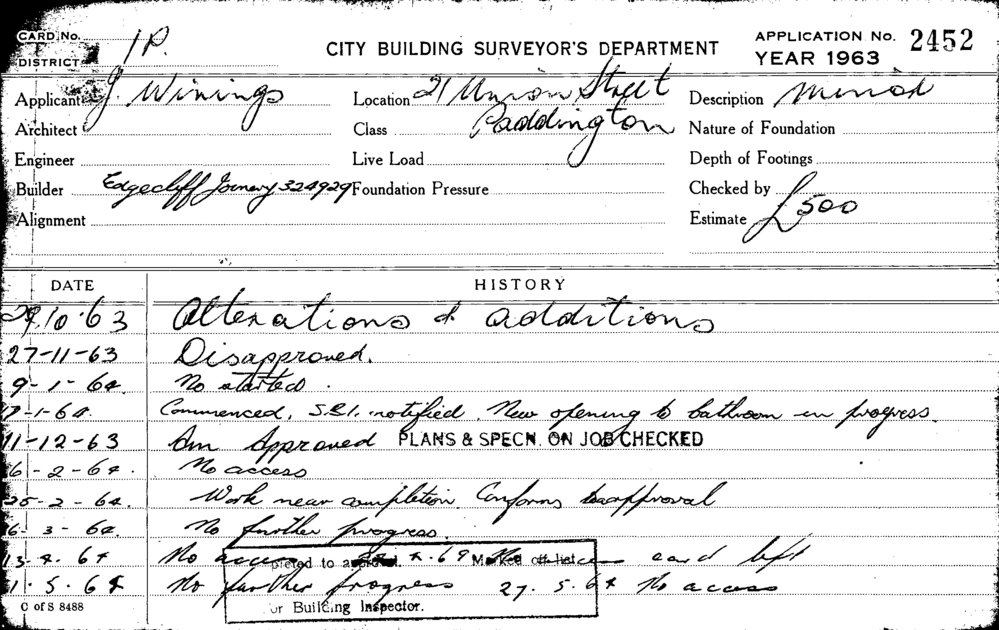 CARD No. 1P.
DISTRICT
CITY BUILDING SURVEYOR'S DEPARTMENT
APPLICATION No. 2452
YEAR 1963
Applicant J. Winings Location 21 Union Street Description Minor
Architect Class Paddington Nature of Foundation
Engineer Live Load Depth of Footings
Builder Edgecliff Joinery 324929 Foundation Pressure Checked by
Alignment Estimate £500
DATE HISTORY
29.10.63 Alterations & additions
27-11-63 Disapproved.
9-1-64 No started.
-1-64. Commenced, S.R.I. notified. New opening to bathroom in progress.
11-12-63 Am Approved PLANS & SPECN. ON JOB CHECKED
6-2-64. No access
25-2-64. Work near completion. Conforms to approval
6-3-64. No further progress.
13.4.64 No access 4.64 card left
pleted to approval. Marked off list
1.5.64 No further progress 27.5.64 No access
or Building Inspector.
C of S 8488